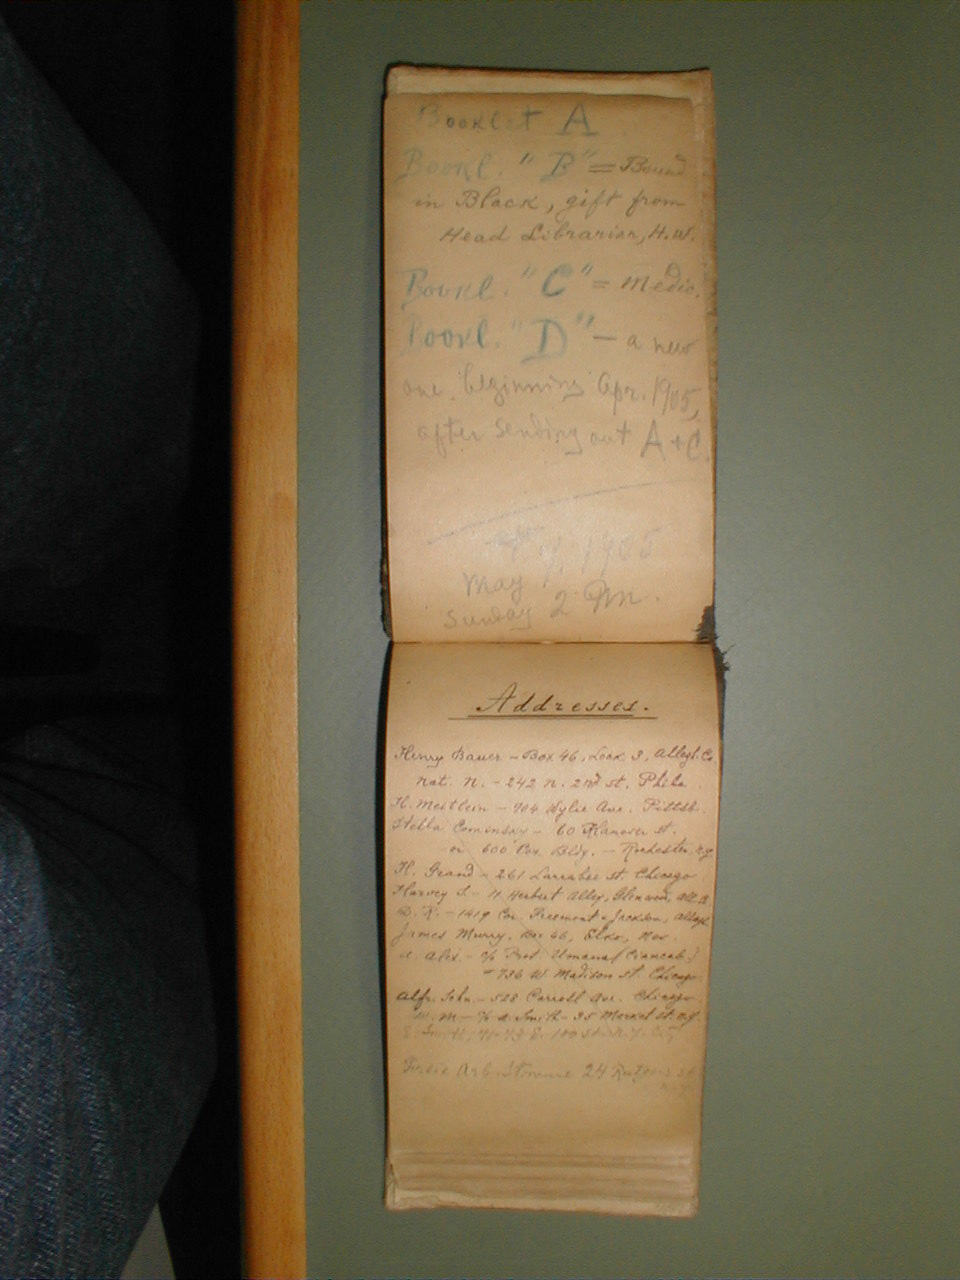 Booklet A
Bookl. "B" = Bound
in Black, gift from
Head Librarian, H.W.
Bookl. "C" = Medic.
Bookl. "D" — a new
one, beginning Apr. 1905,
after sending out A + C.
1905
May
Sunday 2 Pm.
Addresses.
Henry Bauer - Box 46, Lock 3, Allegh. Co.
Nat. N. - 242 N. 2nd St. Phila.
Wylie Ave. Pittsb.
Stella Cominsky - 60 Hanover St.
or 600 Cox Bldg. - Rochester, N.Y.
H. Grand - 261 Larrabee St. Chicago
Harvey Herbert Alley, Glenwood,
D. K. - 1419 Cor. Freemont & Jackson, Allegh.
James Murry, Box 46, Elko, Nev.
Alex. - c/o Prof. Umana
- 736 W. Madison St. Chicago
528 Carroll Ave. Chicago
M. - c/o A. Smith - 35 Market St. N.Y.
Freie Arb. Stimme 24 Rutgers St.